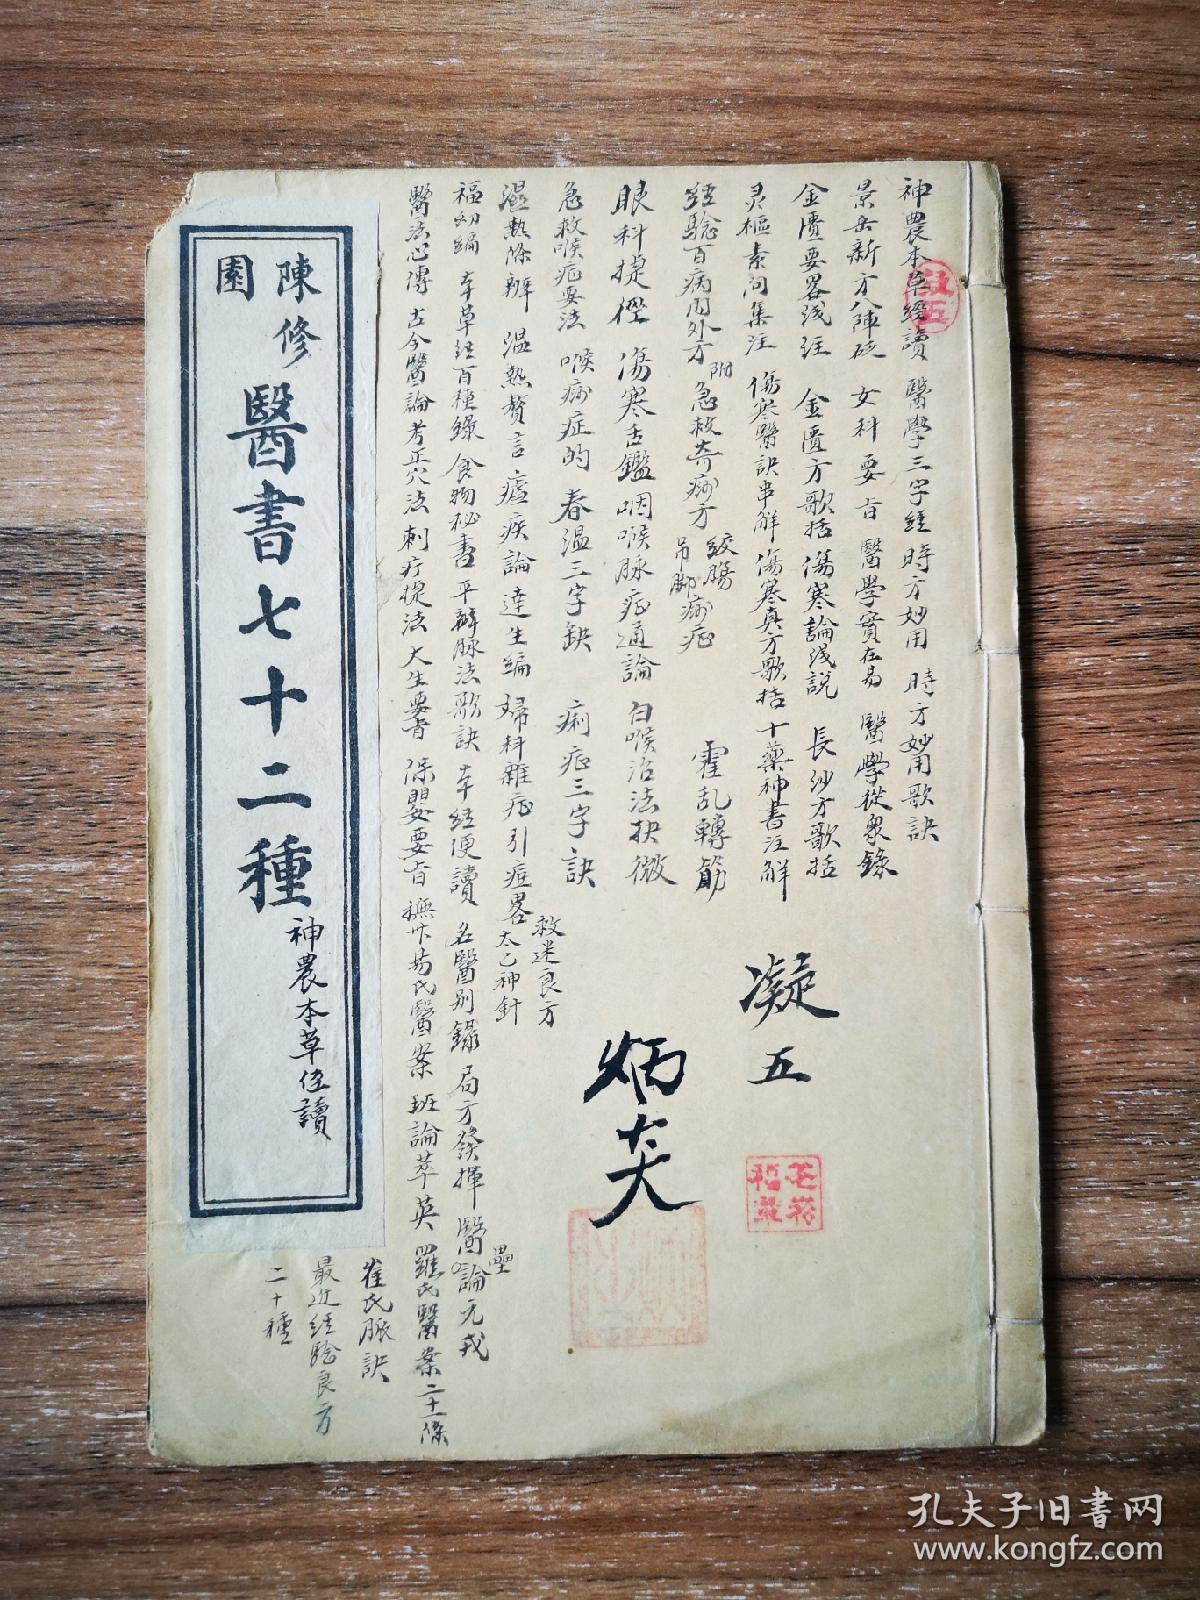 神農本草經讀 醫學三字經 時方妙用 時方妙用歌訣
景岳新方八陣砭 女科要旨 醫學實在易 醫學從衆錄
金匱要畧浅注 金匱方歌括 傷寒論浅説 長沙方歌括
灵樞素问集注 傷寒醫訣串解 傷寒真方歌括 十藥神書注解
经驗百病内外方 附 急救奇痧方 絞腸 吊脚痧症 霍乱轉筋
眼科捷徑 傷寒舌鑑 咽喉脉症通論 白喉治法抉微
急救喉症要法 喉痧症的 春温三字訣 痢症三字訣 救迷良方
濕熱條辨 温熱贅言 瘧疾論 達生編 婦科雜症 引痘畧 太乙神針
福幼編 本草经百種錄 食物秘書 平辨脉法歌訣 本经便讀 名醫别錄 局方發揮 醫壘元戎
醫法心傳 古今醫論 考正穴法 刺疔捷法 大生要旨 保嬰要旨 易氏醫案 班論萃英 羅氏醫案 二十一條
崔氏脈訣
最近经验良方
二十種
凝五
炳英
凝五
陳修園
醫書七十二種
神農本草经讀
孔夫子旧書网
www.kongfz.com